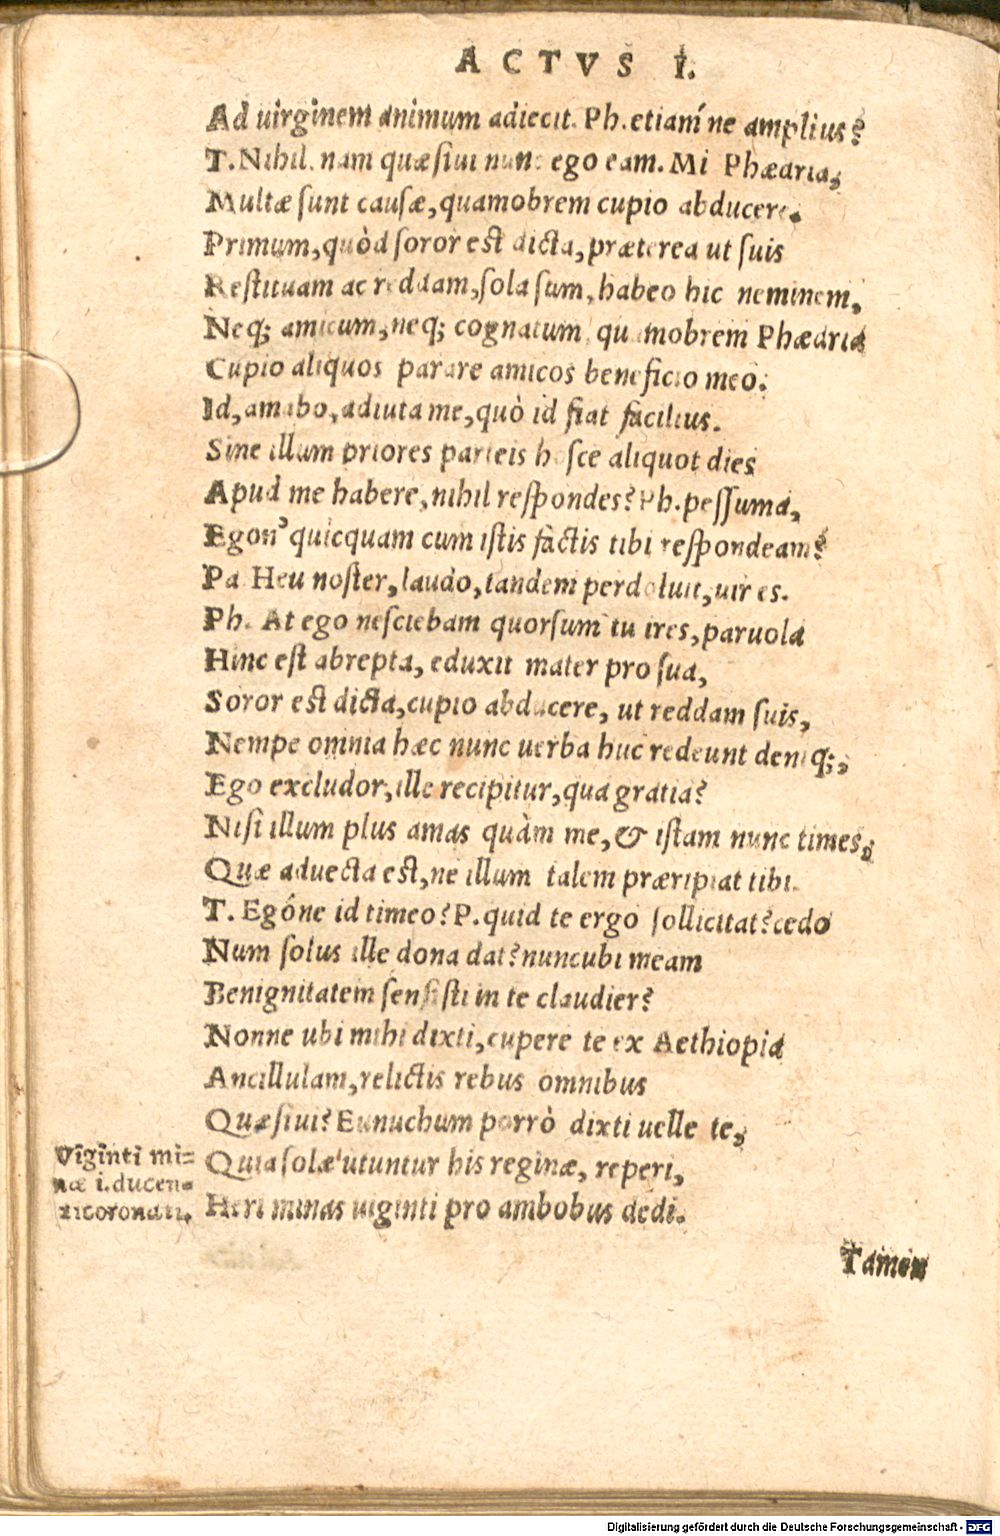 ACTVS I.
Ad uirginem animum adiecit. Ph. etiam ne amplius?
T. Nihil. nam quæsiui nunc ego eam. Mi Phædria,
Multæ sunt causæ, quamobrem cupio abducere.
Primum, quòd soror est dicta, præterea ut suis
Restituam ac reddam, sola sum, habeo hic neminem,
Neq; amicum, neq; cognatum, quamobrem Phædria
Cupio aliquos parare amicos beneficio meo.
Id, amabo, adiuta me, quò id fiat facilius.
Sine illum priores parteis hosce aliquot dies
Apud me habere, nihil respondes? Ph. pessuma,
Egon' quicquam cum istis factis tibi respondeam?
Pa Heu noster, laudo, tandem perdoluit, uir es.
Ph. At ego nesciebam quorsum tu ires, paruola
Hinc est abrepta, eduxit mater pro sua,
Soror est dicta, cupio abducere, ut reddam suis,
Nempe omnia hæc nunc uerba huc redeunt deniq;,
Ego excludor, ille recipitur, qua gratia?
Nisi illum plus amas quàm me, & istam nunc times,
Quæ aduecta est, ne illum talem præripiat tibi.
T. Egóne id timeo? P. quid te ergo sollicitat? cedo
Num solus ille dona dat? nuncubi meam
Benignitatem sensisti in te claudier?
Nonne ubi mihi dixti, cupere te ex Aethiopia
Ancillulam, relictis rebus omnibus
Quæsiui? Eunuchum porrò dixti uelle te,
Quia solæ utuntur his reginæ, reperi,
Heri minas uiginti pro ambobus dedi.
Viginti mi=
næ i. ducen=
ti coronati.
Tamen
Digitalisierung gefördert durch die Deutsche Forschungsgemeinschaft - DFG